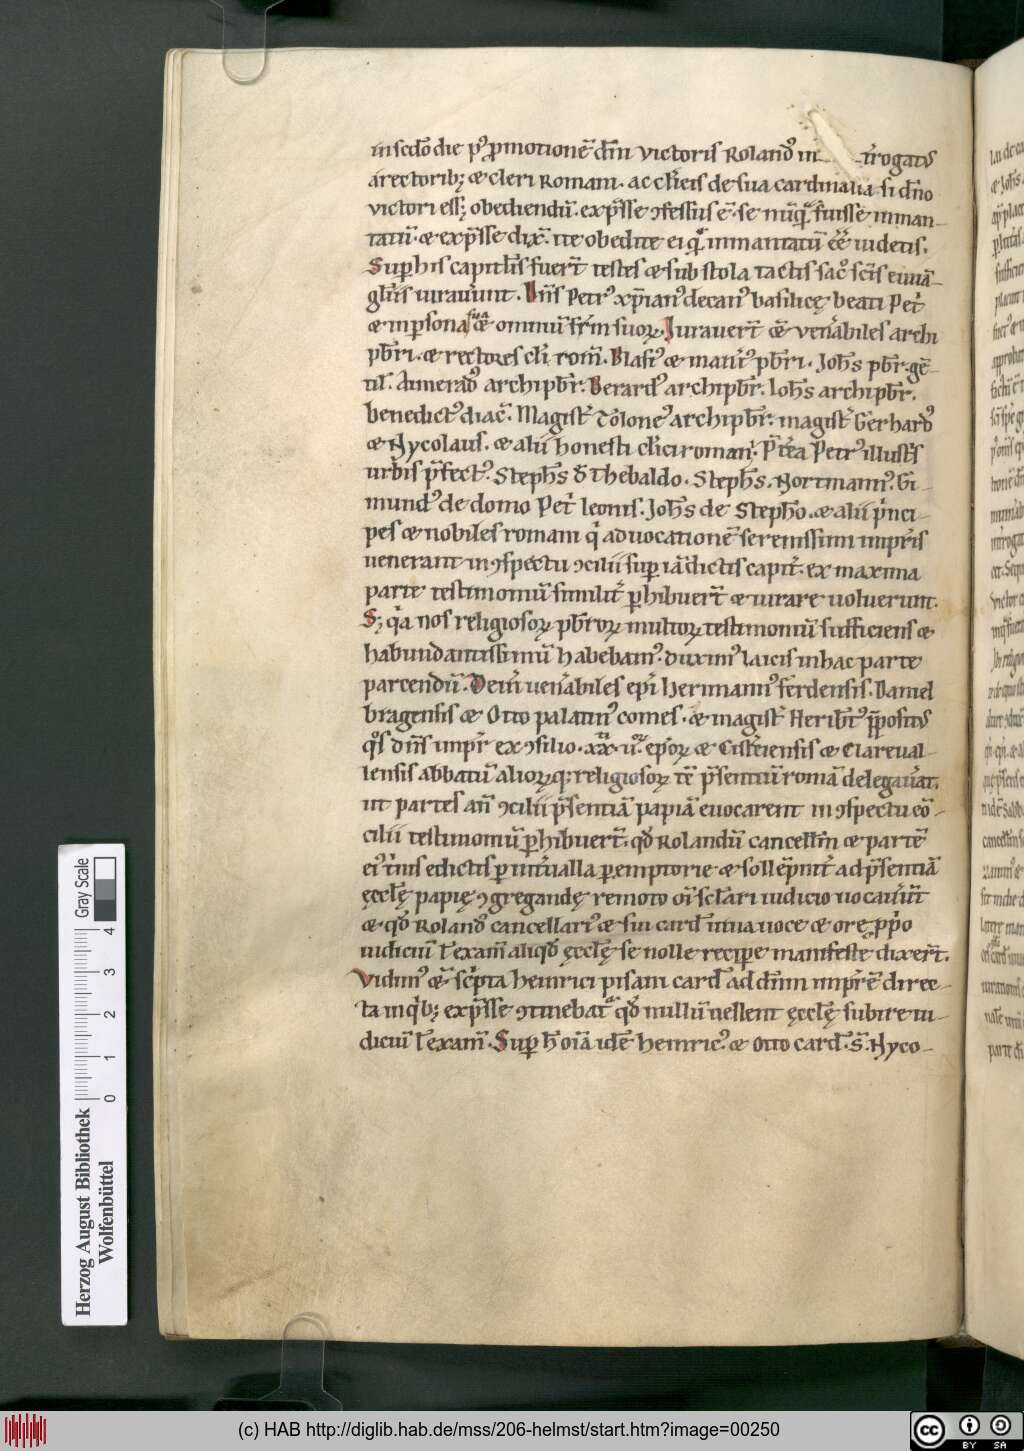 in scdo die p' pmotionē dn̄i victoris Roland' in trogatus
a rectorib; & cleri Romani. ac clicis de sua cardinalia si dn̄o
victori ess; obediendū. exp̄sse ɔfessus ē. se nūq̄ fuisse inman-
tatū. & exp̄sse dix. ite obedite ei q̄ inmantatū eē uidetis.
Sup his capitlis fuert testes & sub stola tactis sac̄ sc̄is euuā-
gl̄iis iurauunt. Dn̄s Petr' xp̄ian' decan' basilicę beati Pet
& in psona sua & omniū frm̄ suoꝝ. Iurauert &̄ ven̄abiles archi
pbri. & rectores cli rom̄. Blasi' & man' pbri. Joh̄s pbr. gē-
til. Aimerad' archipbr. Berard' archipbr. Ioh̄s archipbr.
benedict' diac̄. Magist Tolone' archipbr. magist Gerhard'
& Nycolaus. & alii honesti clici roman. P̄tea Petr' illust̄s
urbis p̄fect'. Steph̄s d̄ Thebaldo. Steph̄s. Nortmann'. Gi-
mund' de domo Pet leonis. Joh̄s de Stepho. & alii p̄nci-
pes & nobiles romani q̄ ad uocationē serenissimi impris
uenerant in ɔspectu ɔcilii sup iā dictis capit. ex maxima
parte testimoniū similit phibuert & iurare uoluerunt.
S; q̄a nos religiosoꝝ pbroꝝ multoꝝ testimoniū sufficiens &
habundantissimū habebam'. duxim' laicis in hac parte
parcendū. Deiñ uen̄abiles ep̄i Hermann' ferdensis. Daniel
bragensis & Otto palatin' comes. & magist Heribt' p̄posit'
q̄s dn̄s impr ex ɔsilio .xx.ii. ep̄oꝝ & Cist̄ciensis & Clareual-
lensis abbatū alioꝝq; religiosoꝝ tc̄ p̄sentiū romā delegauat.
ut partes an̄ ɔcilii p̄sentiā papiā euocarent in ɔspectu cō-
cilii testimoniū phibuert. qd Rolandū cancell̄m & partē
ei' tnis edictis p intualla pemptorie & sollēpnit ad p̄sentiā
ęccl̄ę papię ɔgregandę remoto oi sclari iudicio uocauūt
& qd Roland' cancellari' & sui card̄ uiua uoce & ore pp̄o
iudiciū l examī aliqd ęccl̄ę se nolle recipe manifeste dixert.
Vidim' &̄ sc̄pta heinrici pisani card̄ ad dn̄m imprē direc-
ta in q̄b; exp̄sse ɔtinebat qd nullū uellent ęccl̄ę subire iu-
diciū l exam̄. Sup h̄ oīa idē heinric' & Otto card̄. S. Nyco-
Herzog August Bibliothek
Wolfenbüttel
Gray Scale
0 1 2 3 4
(c) HAB http://diglib.hab.de/mss/206-helmst/start.htm?image=00250
cc BY SA